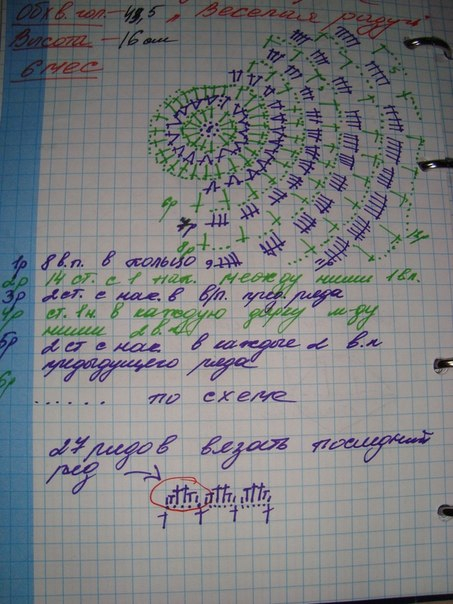 Обхв. гол. - 43,5 „Веселая радуга"
Высота - 16 см
6 мес
6р
7р
8р
9
1р 8 в.п. в кольцо
2р 14 ст. с 1 нак. между ними 1 вп.
3р 2 ст. с нак. в в/п. пред. ряда
4р ст. 1 н. в каждую дырку м-ду
ними 2 в.п.
5р 2 ст с нак. в каждые 2 в.п
предыдущего ряда
6р ...... по схеме
27 рядов вязать последний
ряд